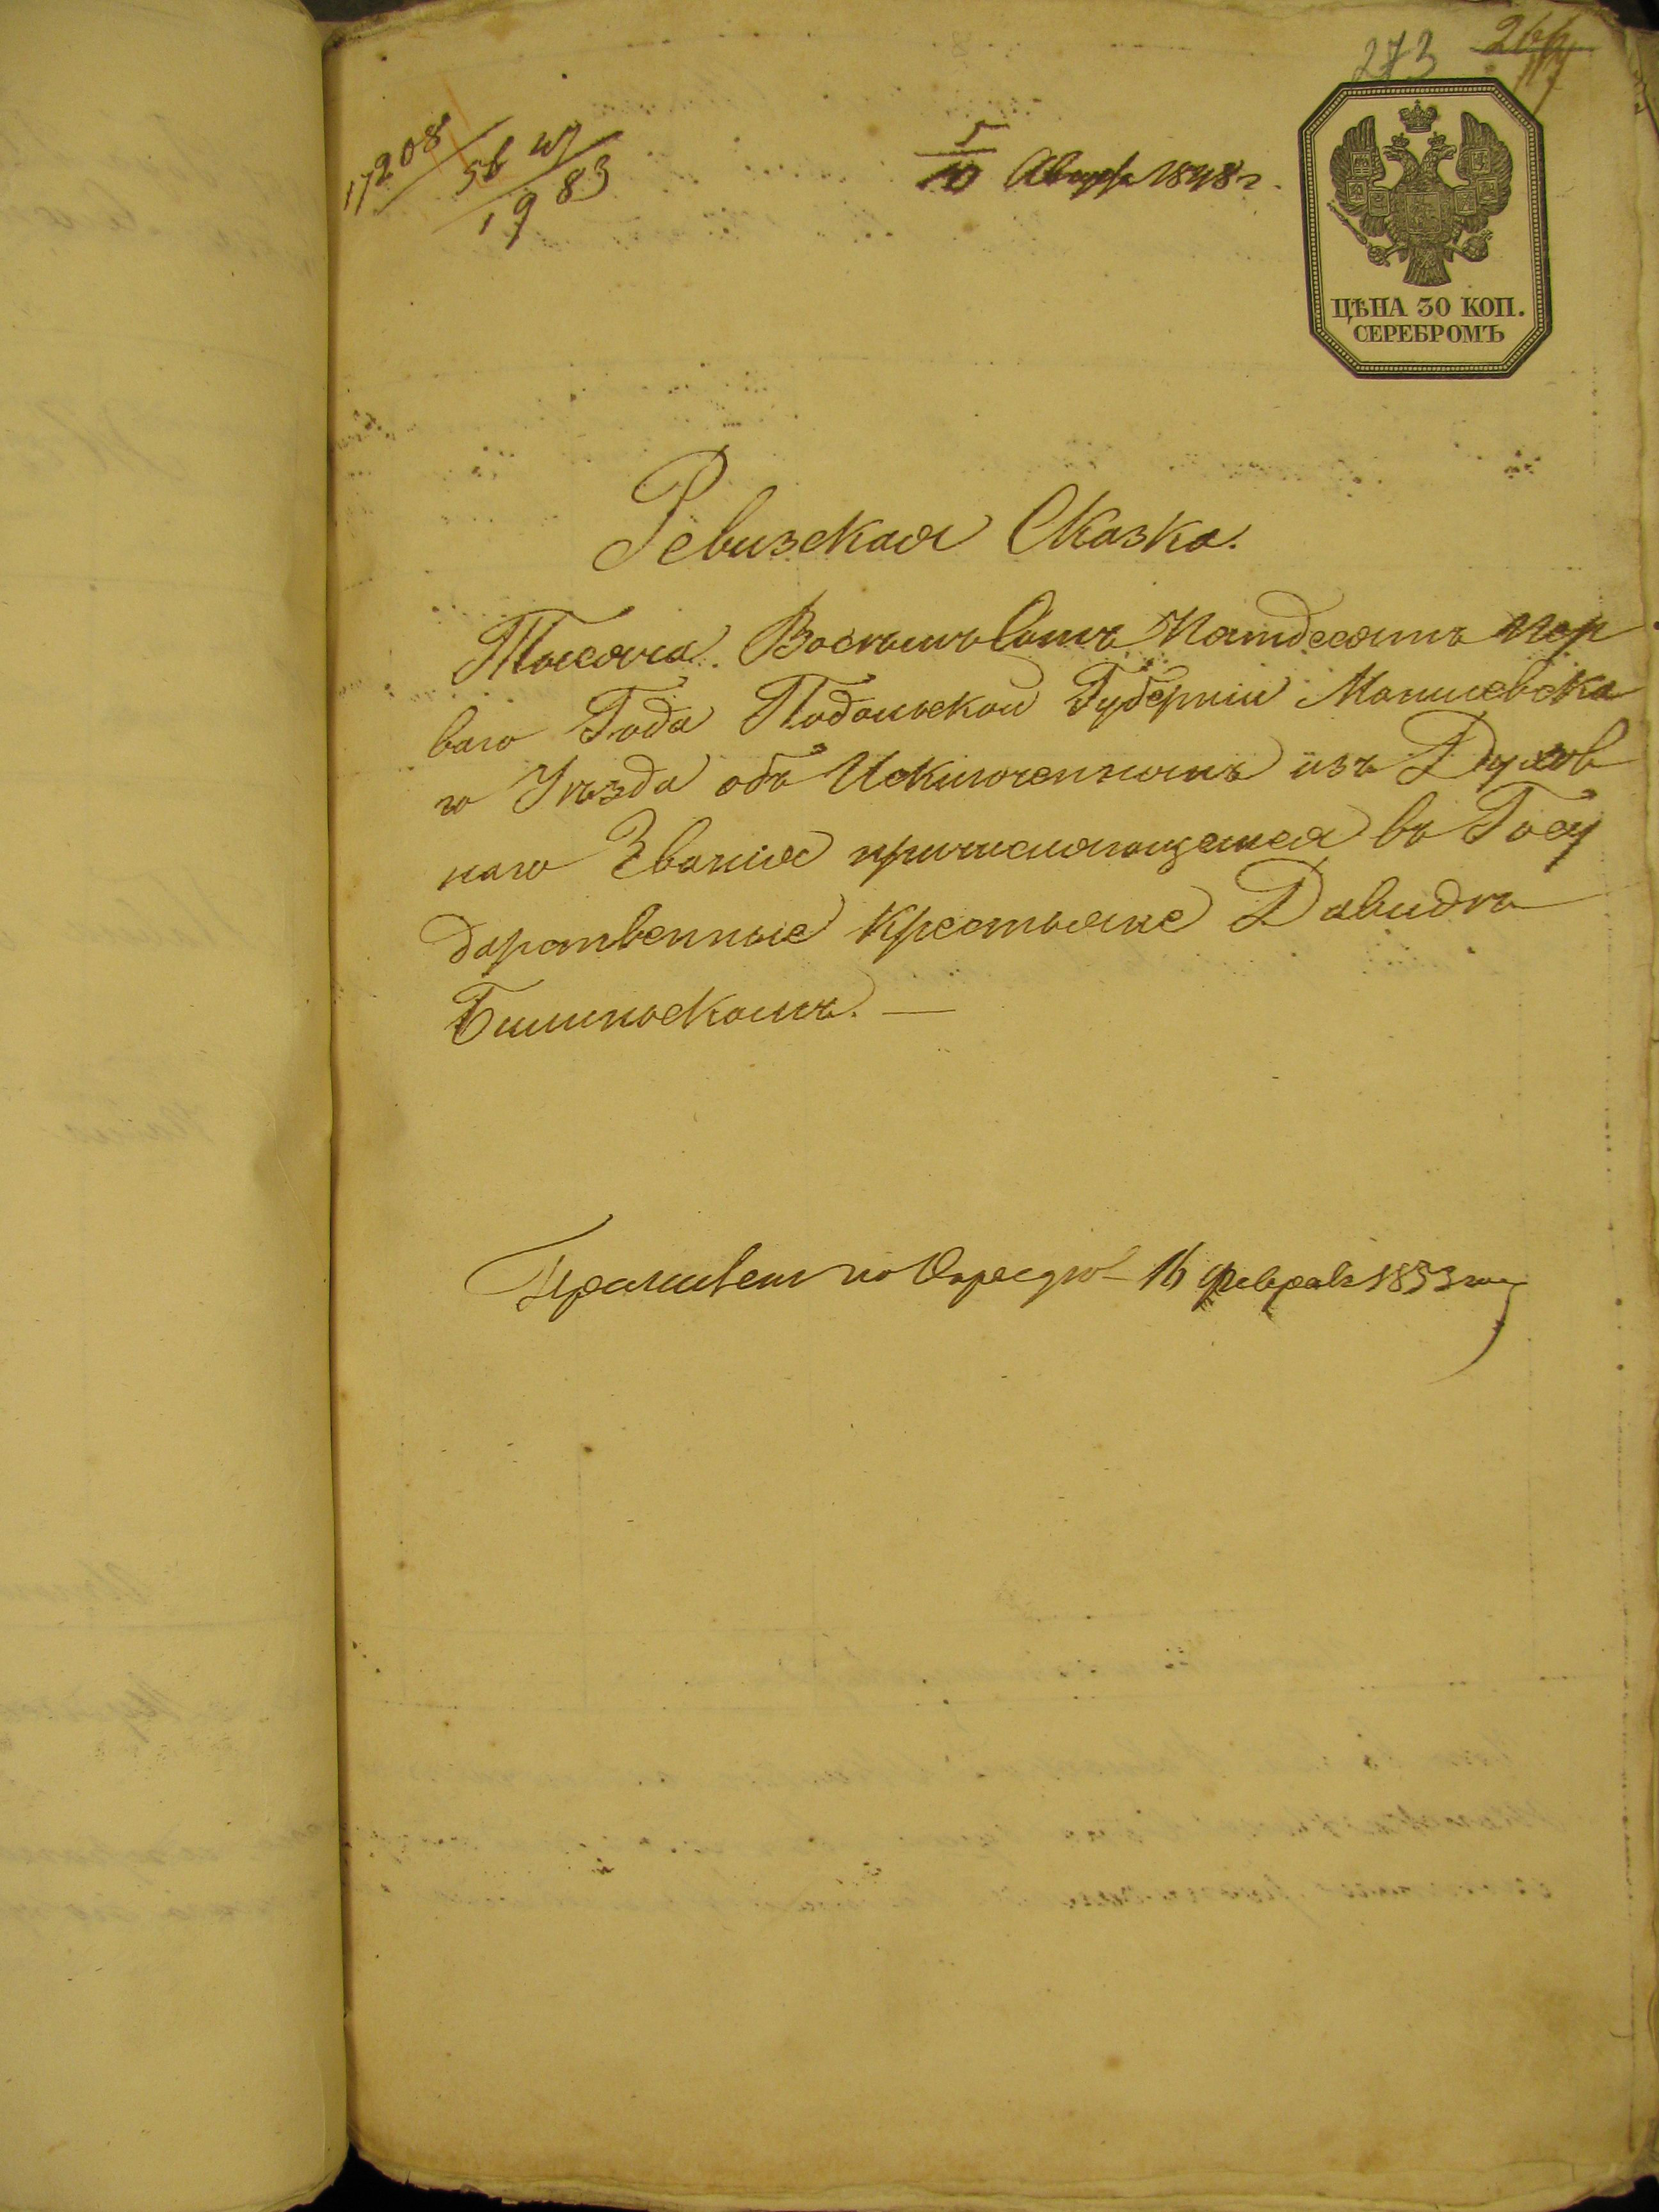 273 264
17208
56 1983
5/10 Августа 1848 г.
ЦѢНА 30 КОП.
СЕРЕБРОМЪ
Ревизская Сказка.
Тысяча Восѣмьсотъ Пятдесятъ пер
ваго Года Подольской Губерніи Могилевска
го Уѣзда объ Исключенномъ изъ Духов
наго Званія причисляющемся въ Госу
дарственные крестьяне Давидѣ
Билинскомъ. —
16 февраля 1853 года